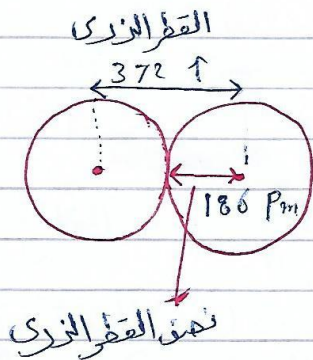 القطر الذري
372 ↑
186 Pm
نصف القطر الذري